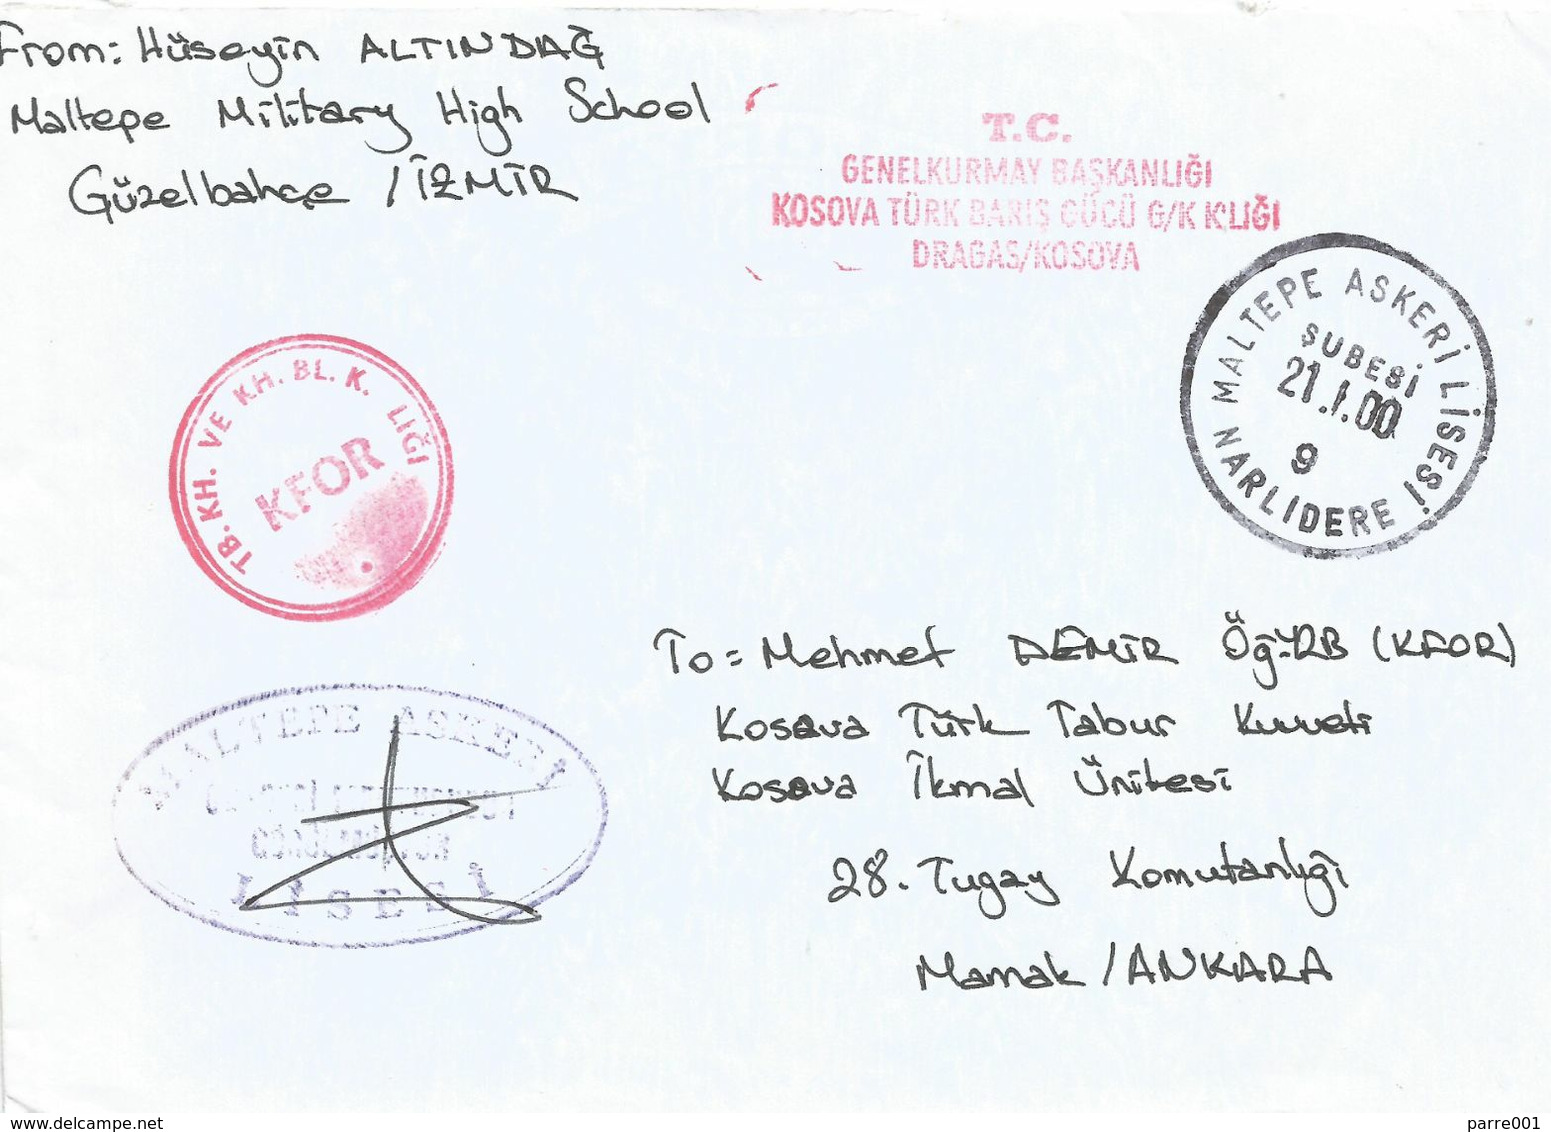 From: Hüseyin ALTINDAĞ
Maltepe Military High School
Güzelbahçe / İZMİR
T.C.
GENELKURMAY BAŞKANLIĞI
KOSOVA TÜRK BARIŞ GÜCÜ G/K K'LIĞI
DRAGAS/KOSOVA
MALTEPE ASKERİ LİSESİ
ŞUBESİ
21.1.00
9
NARLIDERE
TB. KH. VE KH. BL. K. LIĞI
KFOR
To = Mehmet DEMİR (KFOR)
Kosova Türk Tabur Kuvveti
Kosova İkmal Ünitesi
28. Tugay Komutanlığı
Mamak / ANKARA
MALTEPE ASKERİ
LİSESİ
www.delcampe.net
parre001